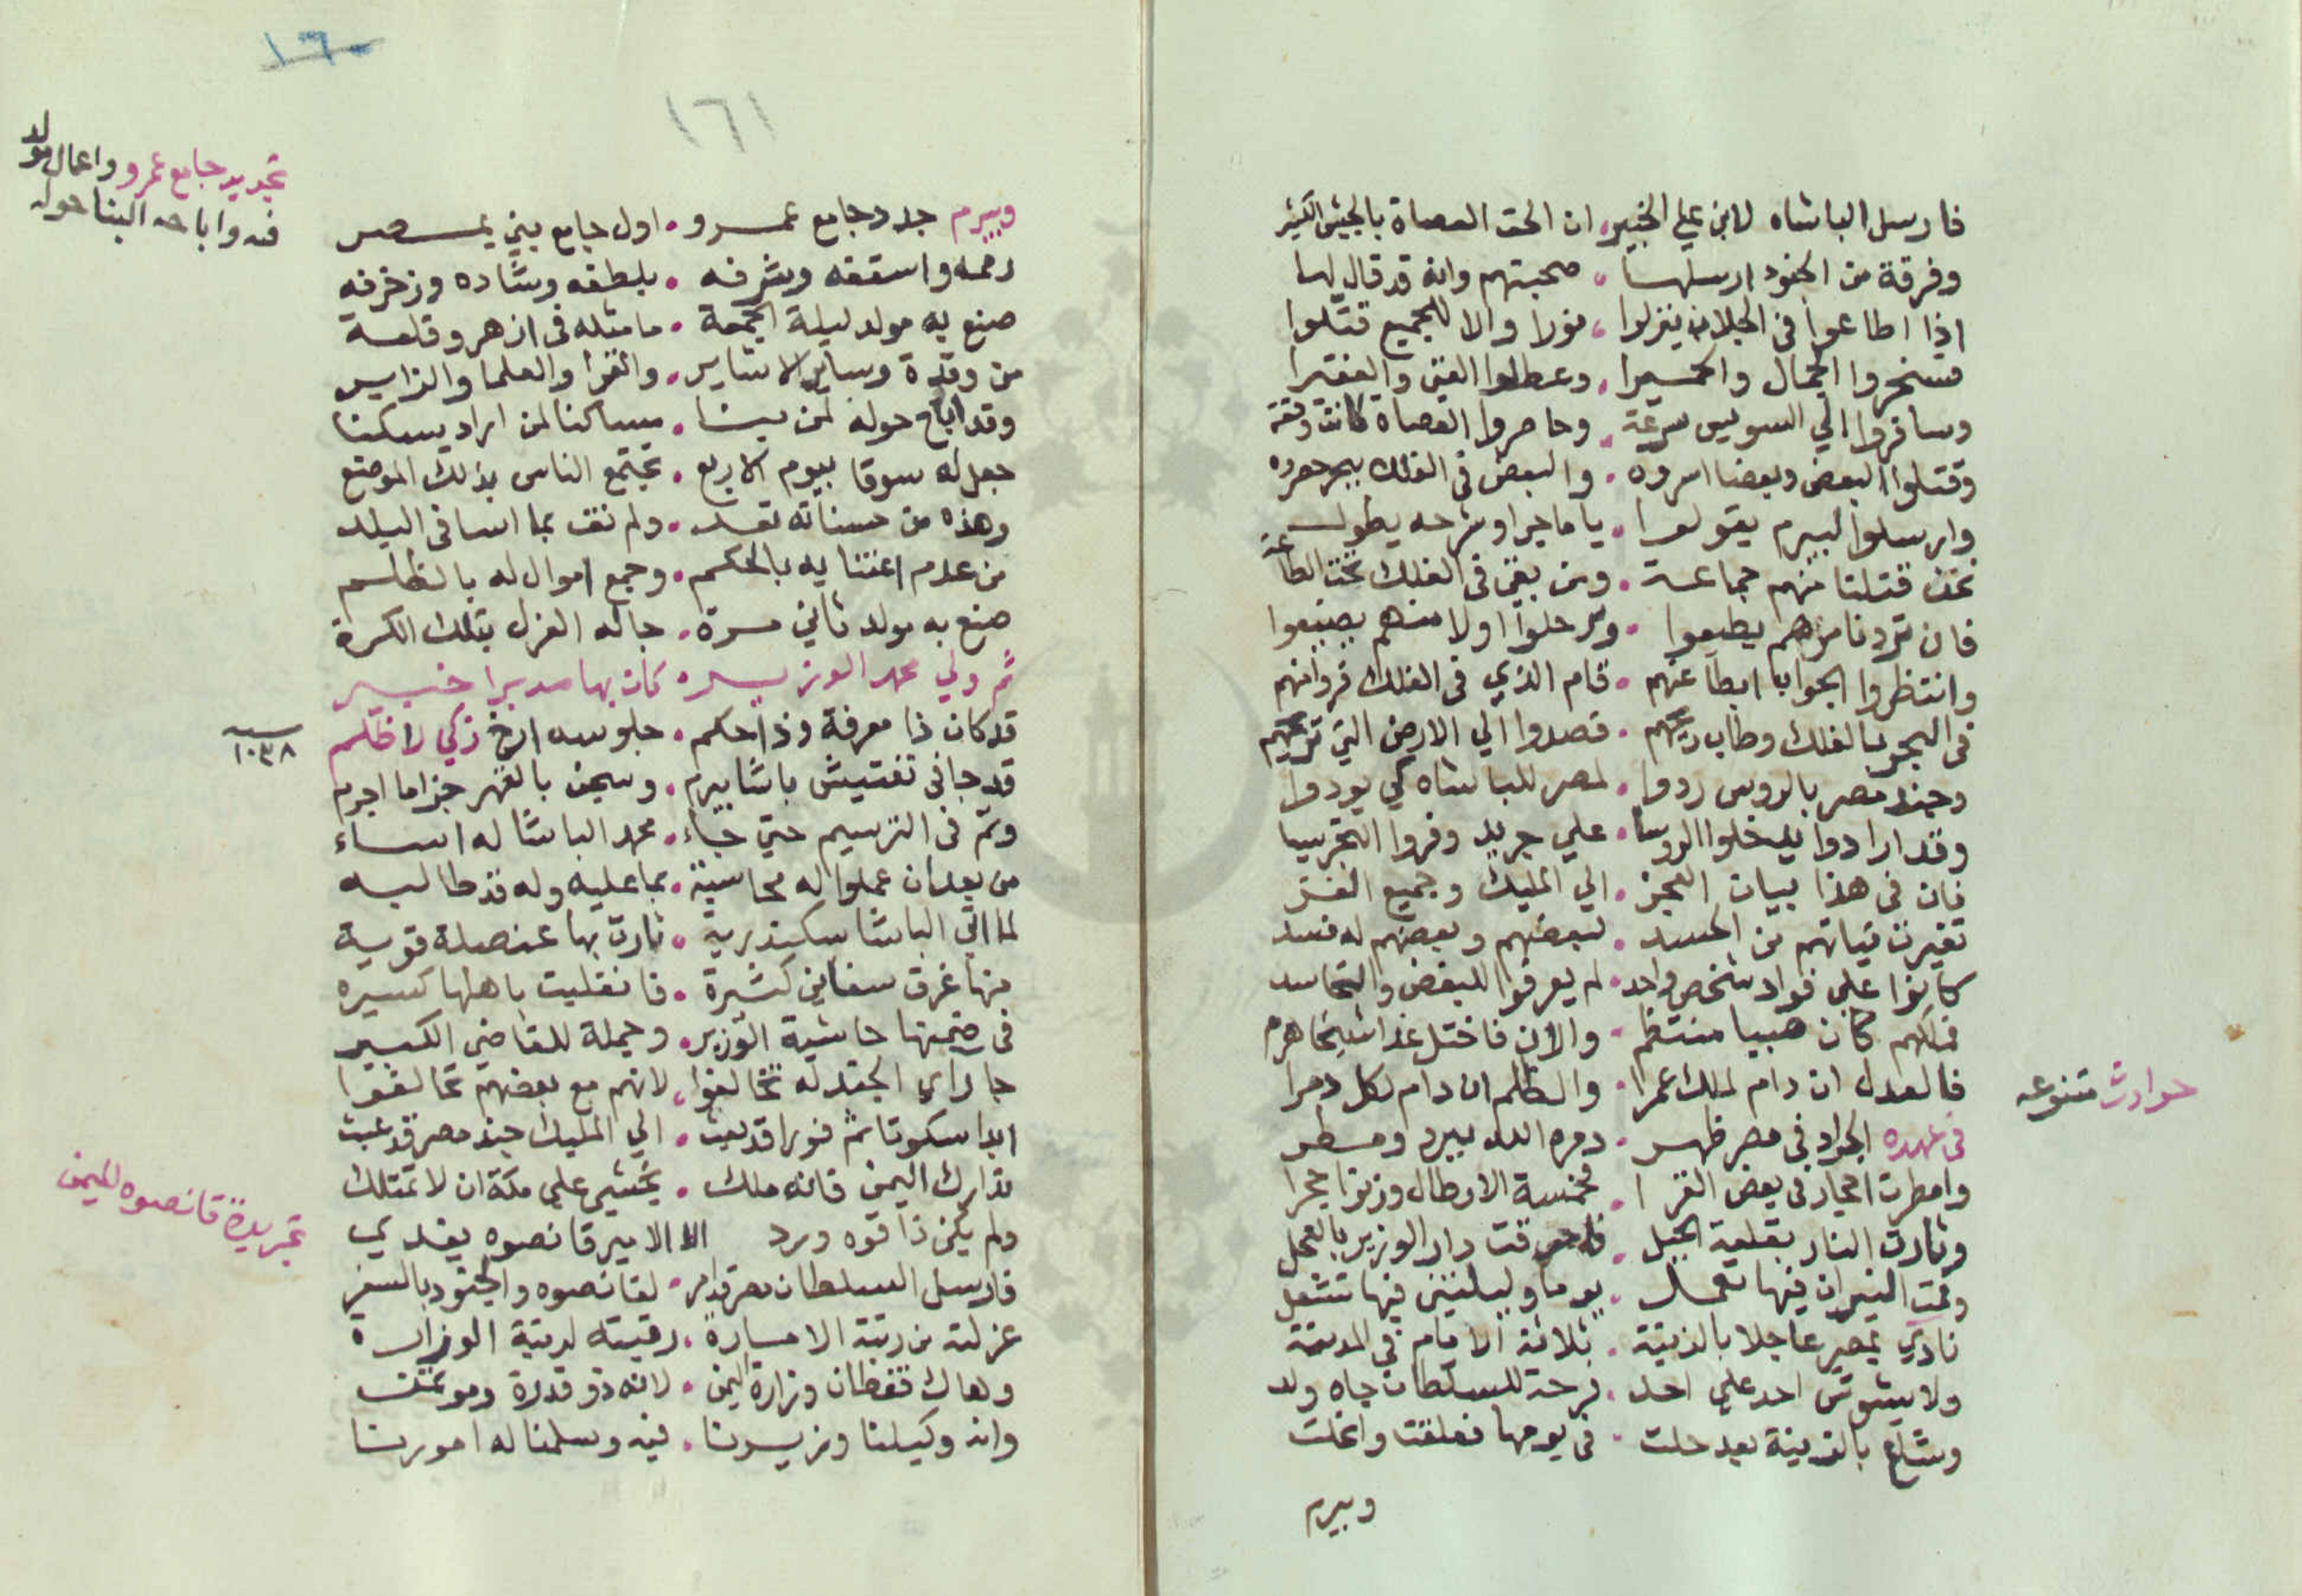 فارسل الباشاه لابن علي الخبير، ان الحق العصاة بالجيش الكثير
وفرقة من الجنود ارسلها . صحبتهم وانه قد قال لها
اذا اطاعوا في الجلان ينزلوا . فورا والا للجميع قتلوا
فسخروا الجمال والحميرا . وعطلوا الغني والفقيرا
وسافروا الي السويس سرعة . وحاصروا العصاة كانت وقعة
وقتلوا البعض وبعضا اسروه . والبعض في الفلك ببحر
وارسلوا لبيرم يقولوا . يا ماجرا وشرحه يطول
نحن قتلنا منهم جماعة . ومن بقي في الفلك تحت الطاعة
فان ترد نامرهم يطيعوا . ويرحلوا اولا منهم يضيعوا
وانتظروا الجوابا ابطا عنهم . قام الذي في الفلك فروا منهم
في البحر بالفلك وطاب ريحهم . قصدوا الي الارض التي تريحهم
وجند مصر بالروس ردوا . لمصر للباشاه كي يودوا
وقد ارادوا يدخلوا الروسا . علي جريد وفروا التخريبا
فان في هذا بيان العجز . الي المليك وجميع الغز
تغيرت نياتهم من الحسد . لبعضهم وبعضهم له فسد
كانوا علي فواد شخص واحد . لم يعرفوا للبغض والتحاسد
فملكهم كان مهيبا منتظم . والان فاختل غدا
فالعدل ان دام لملك عمرا . والظلم ان دام لكل دمرا
حوادث متنوعه
في عهده الجراد في مصر ظهر . دمره الله ببرد ومطر
وامطرت احجار في بعض القرا . خمسة الارطال وزنوا حجرا
وثارت النار بقلعة الجبل . فاحرقت دار الوزير بالعجل
وقمت النيران فيها تعمل . يوما وليلتين فيها تشعل
نادي بمصر عاجلا بالزينة . ثلاثة الايام في المدينة
ولا يشوش احد علي احد . فرحة للسلطان جاه ولد
وشاع بالزينة بعد حلت . في يومها فعلقت وانحلت
وبيرم
١٦٠
١٦١
تجديد جامع عمرو واعمال مولد
فيه واباحه البنا حوله
وبيرم جدد جامع عمرو . اول جامع بني بمصر
رممه واسقفه وشرفه . بلطفه وشاده وزخرفه
صنع به مولد ليلة الجمعة . ما مثله في ازهر وقلعة
من وقدة وساير الاشاير . والقرا والعلما والزاير
وقد اباح حوله لمن بنا . مساكنا لمن اراد يسكنا
جعل له سوقا بيوم الاربع . تجتمع الناس بذلك الموضع
وهذه من حسناته تعد . ولم نقف بما اسا في البلد
من عدم اعتنايه بالحكم . وجمع اموال له بالظلم
صنع به مولد ثاني مرة . جاله العزل بتلك الكرة
ثم ولي محمد الوزير . كان بها مدبرا خبير
قد كان ذا معرفة وذا حكم . جلوسه ارخ زكي لا ظلم
سنة ١٠٣٨
قد جا في تفتيش باشا بيرم . وسجن بالقهر جزا ما اجرم
وتم في الترسيم حتي جاء . محمد الباشا له اساء
من بعد ان عملوا له محاسبة . بما عليه وله قد طالبه
لما اتي الباشا سكندرية . ثارت بها عنصلة قوية
منها غرق سفاين كثيرة . فانقلبت باهلها كسيره
في ضمنها حاشية الوزير . وجملة للقاضي الكبير
جا راي الجند له تخالفوا . لانهم مع بعضهم تحالفوا
ابدا سكوتا ثم فورا قد بعث . الي المليك جند مصر قد عبث
تدارك اليمن فانه ملك . يخشي علي مكة ان لا تمتلك
تجريدة قانصوه لليمن
ولم يكن ذا قوه ورد الا الامير قانصوه يفدي
فارسل السلطان . لقانصوه والجنود بالسفر
عزلته من رتبة الامارة . رقيته لرتبة الوزارة
وهاك قفطان وزارة اليمن . لانه ذو قدرة وموتمن
وانه وكيلنا وزيرنا . فيه وسلمنا له امورنا